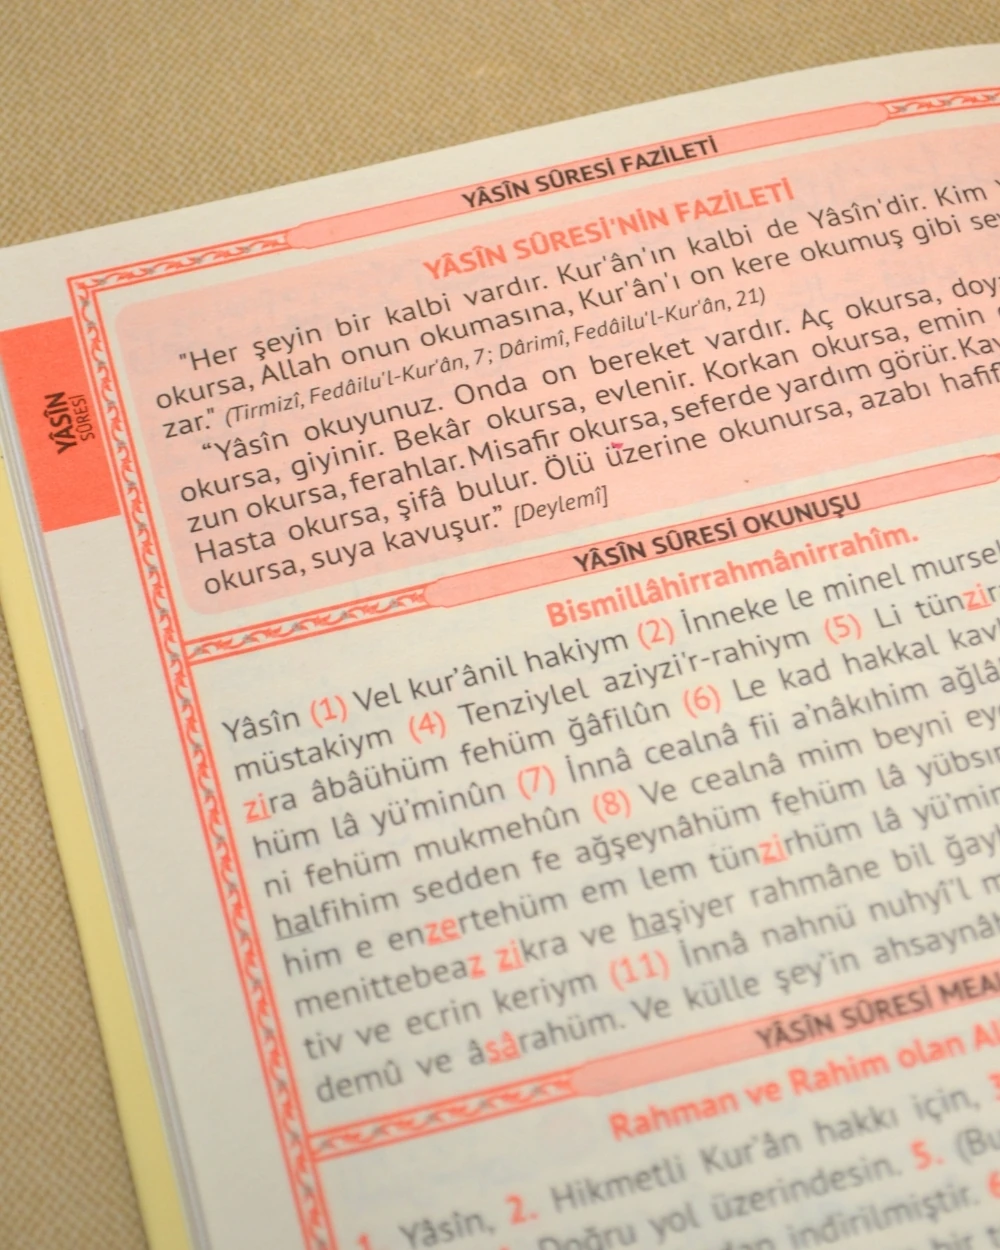 YÂSÎN SÛRESİ FAZİLETİ
YÂSÎN SÛRESİ'NİN FAZİLETİ
"Her şeyin bir kalbi vardır. Kur'ân'ın kalbi de Yâsîn'dir. Kim
okursa, Allah onun okumasına, Kur'ân'ı on kere okumuş gibi se
zar." (Tirmizî, Fedâilu'l-Kur'ân, 7; Dârimî, Fedâilu'l-Kur'ân, 21)
“Yâsîn okuyunuz. Onda on bereket vardır. Aç okursa, doy
okursa, giyinir. Bekâr okursa, evlenir. Korkan okursa, emin
zun okursa, ferahlar. Misafir okursa, seferde yardım görür. Kay
Hasta okursa, şifâ bulur. Ölü üzerine okunursa, azabı hafif
okursa, suya kavuşur.” [Deylemî]
YÂSÎN
SÛRESİ
YÂSÎN SÛRESİ OKUNUŞU
Bismillâhirrahmânirrahîm.
Yâsîn (1) Vel kur'ânil hakiym (2) İnneke le minel mursel
müstakiym (4) Tenziylel aziyzi'r-rahiym (5) Li tünzir
zira âbâühüm fehüm ğâfilûn (6) Le kad hakkal kav
hüm lâ yü'minûn (7) İnnâ cealnâ fii a'nâkıhim ağlâ
ni fehüm mukmehûn (8) Ve cealnâ mim beyni ey
halfihim sedden fe ağşeynâhüm fehüm lâ yübsı
him e enzertehüm em lem tünzirhüm lâ yü'mi
menittebeaz zikra ve haşiyer rahmâne bil ğay
tiv ve ecrin keriym (11) İnnâ nahnü nuhyi'l m
demû ve âsârahüm. Ve külle şey'in ahsaynâ
YÂSÎN SÛRESİ MEA
Rahman ve Rahim olan Al
1. Yâsîn, 2. Hikmetli Kur'ân hakkı için,
Doğru yol üzerindesin. 5. (Bu
indirilmiştir.
bir